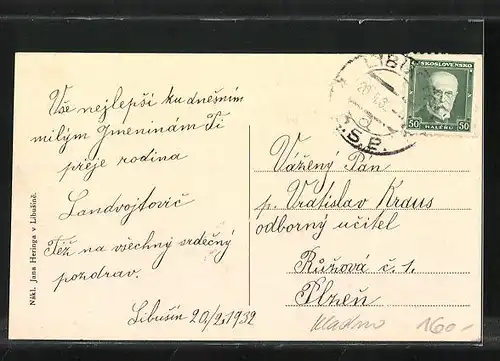 Vše nejlepší ku dnešním
milým Jmeninám Ti
přeje rodina
Landvojtovič
Též na všechny srdečný
pozdrav.
Libušín 20/2 1932
Nákl. Jana Heringa v Libušíně.
LIBU
Č.S.P.
ČESKOSLOVENSKO
50 HALÉŘŮ 50
Vážený Pán
p. Vratislav Kraus
odborný učitel
Růžová č. 1.
Plzeň
Kladno 160.-